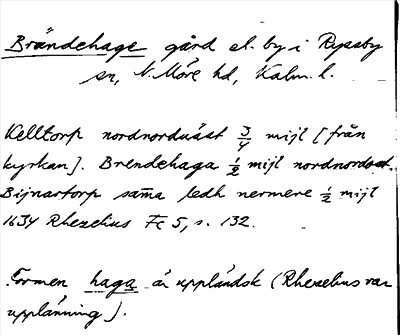 Brändehage gård el. by i Ryssby
sn, N. Möre hd, Kalm. l.
Kelltorp nordnordväst 3/4 mijl [från
kyrkan]. Brendehaga 1/2 mijl nordnordost.
Bijnartorp sam̄a ledh nermere 1/2 mijl
1634 Rhezelius Fc 5, s. 132.
Formen haga är uppländsk (Rhezelius var
upplänning).